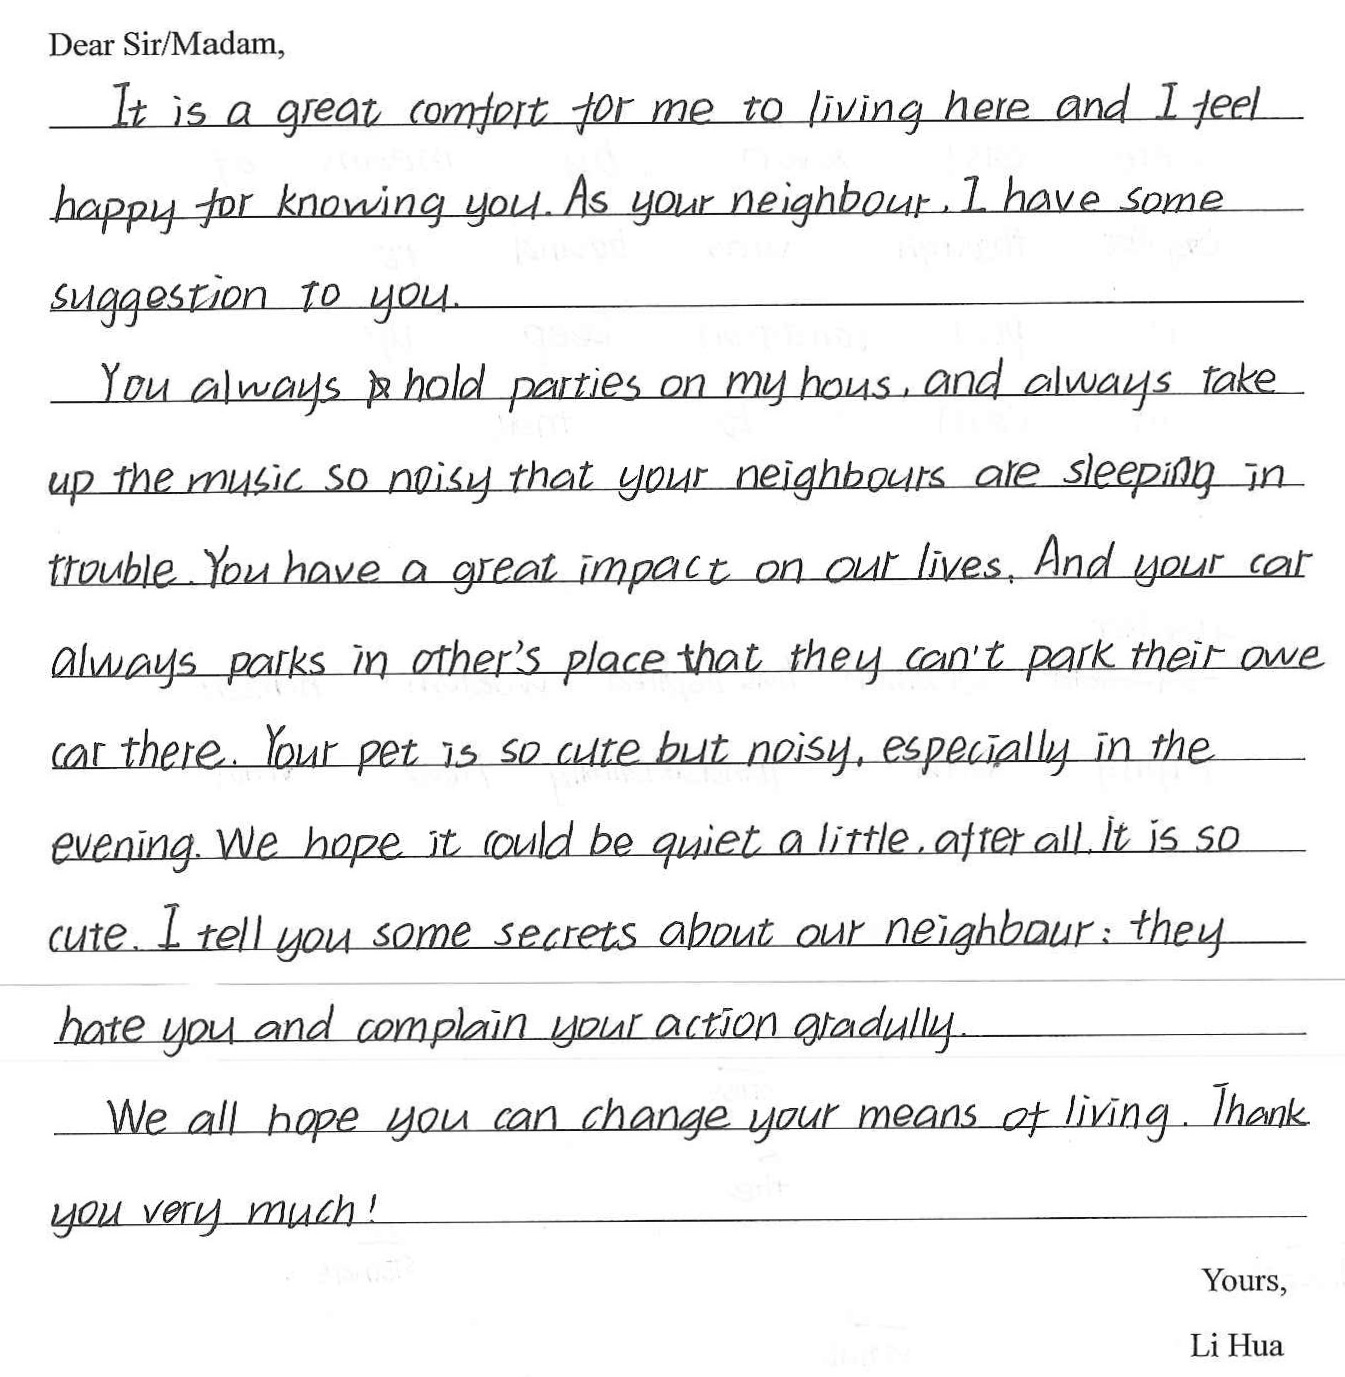 Dear Sir/Madam,
It is a great comfort for me to living here and I feel
happy for knowing you. As your neighbour, I have some
suggestion to you.
You always hold parties on my hous, and always take
up the music so noisy that your neighbours are sleeping in
trouble. You have a great impact on our lives. And your car
always parks in other's place that they can't park their owe
car there. Your pet is so cute but noisy, especially in the
evening. We hope it could be quiet a little, after all, it is so
cute. I tell you some secrets about our neighbour: they
hate you and complain your action gradully.
We all hope you can change your means of living. Thank
you very much!
Yours,
Li Hua